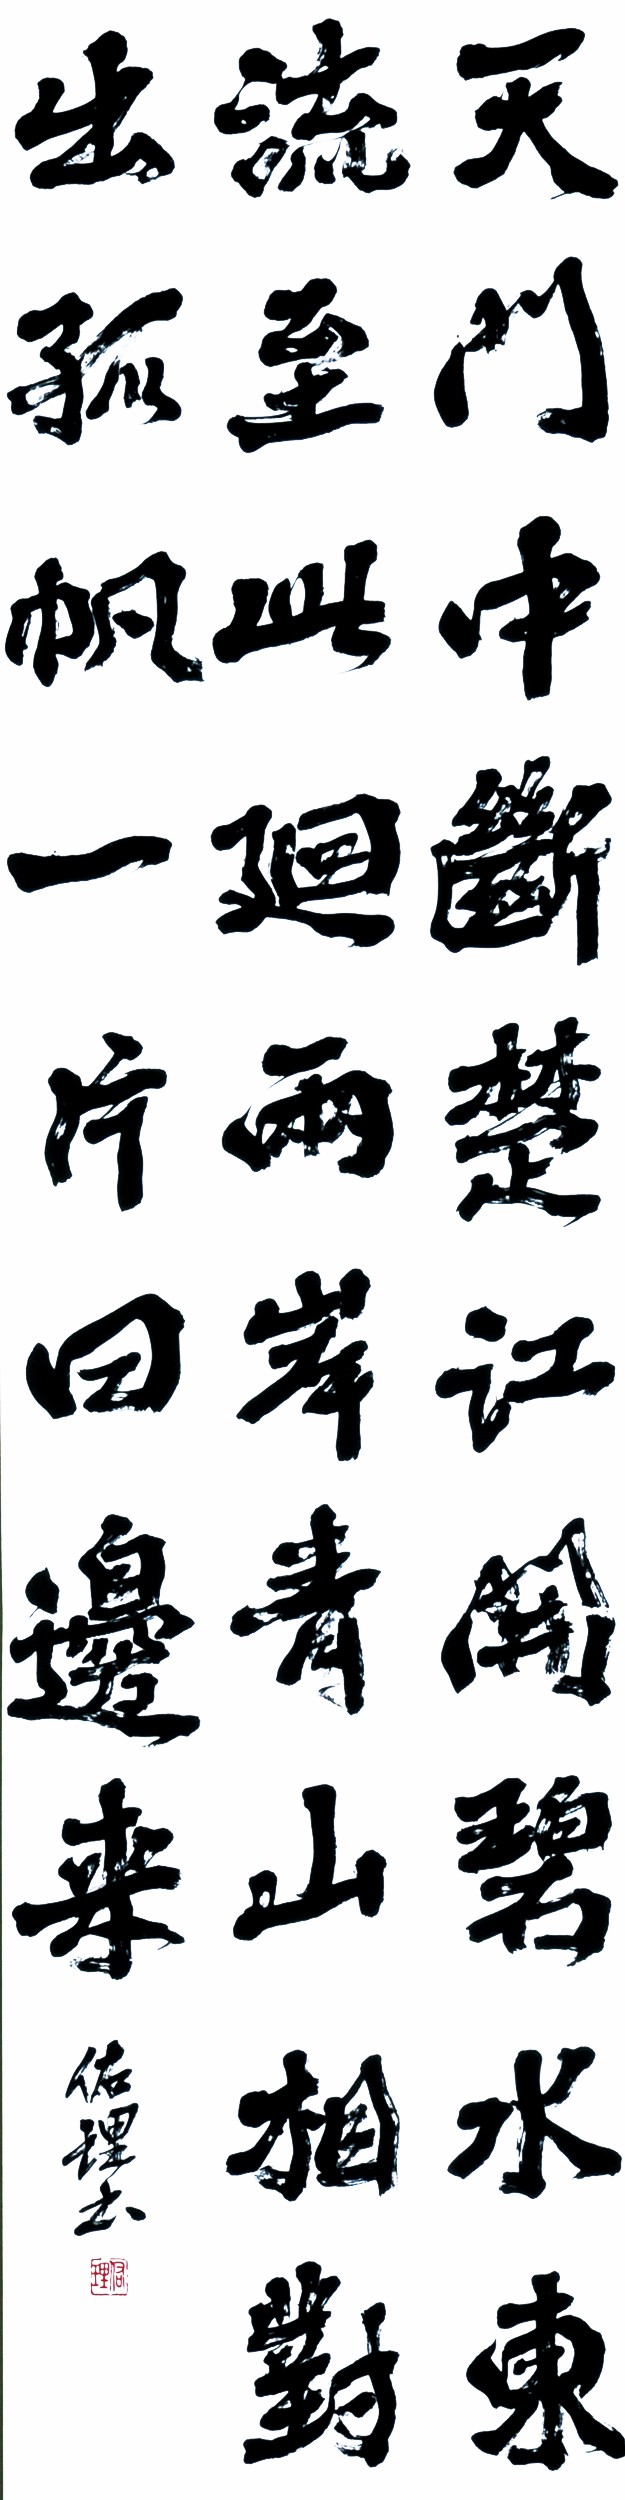 天門中斷楚江開碧水東
流至此迴兩岸青山相對
出孤帆一片日邊來